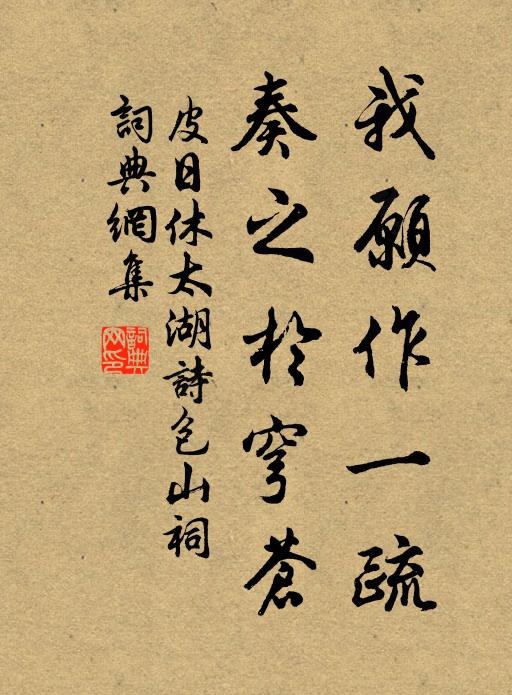 我願作一疏
奏之於穹蒼
皮日休太湖詩包山祠
詞典網集
詞典网印